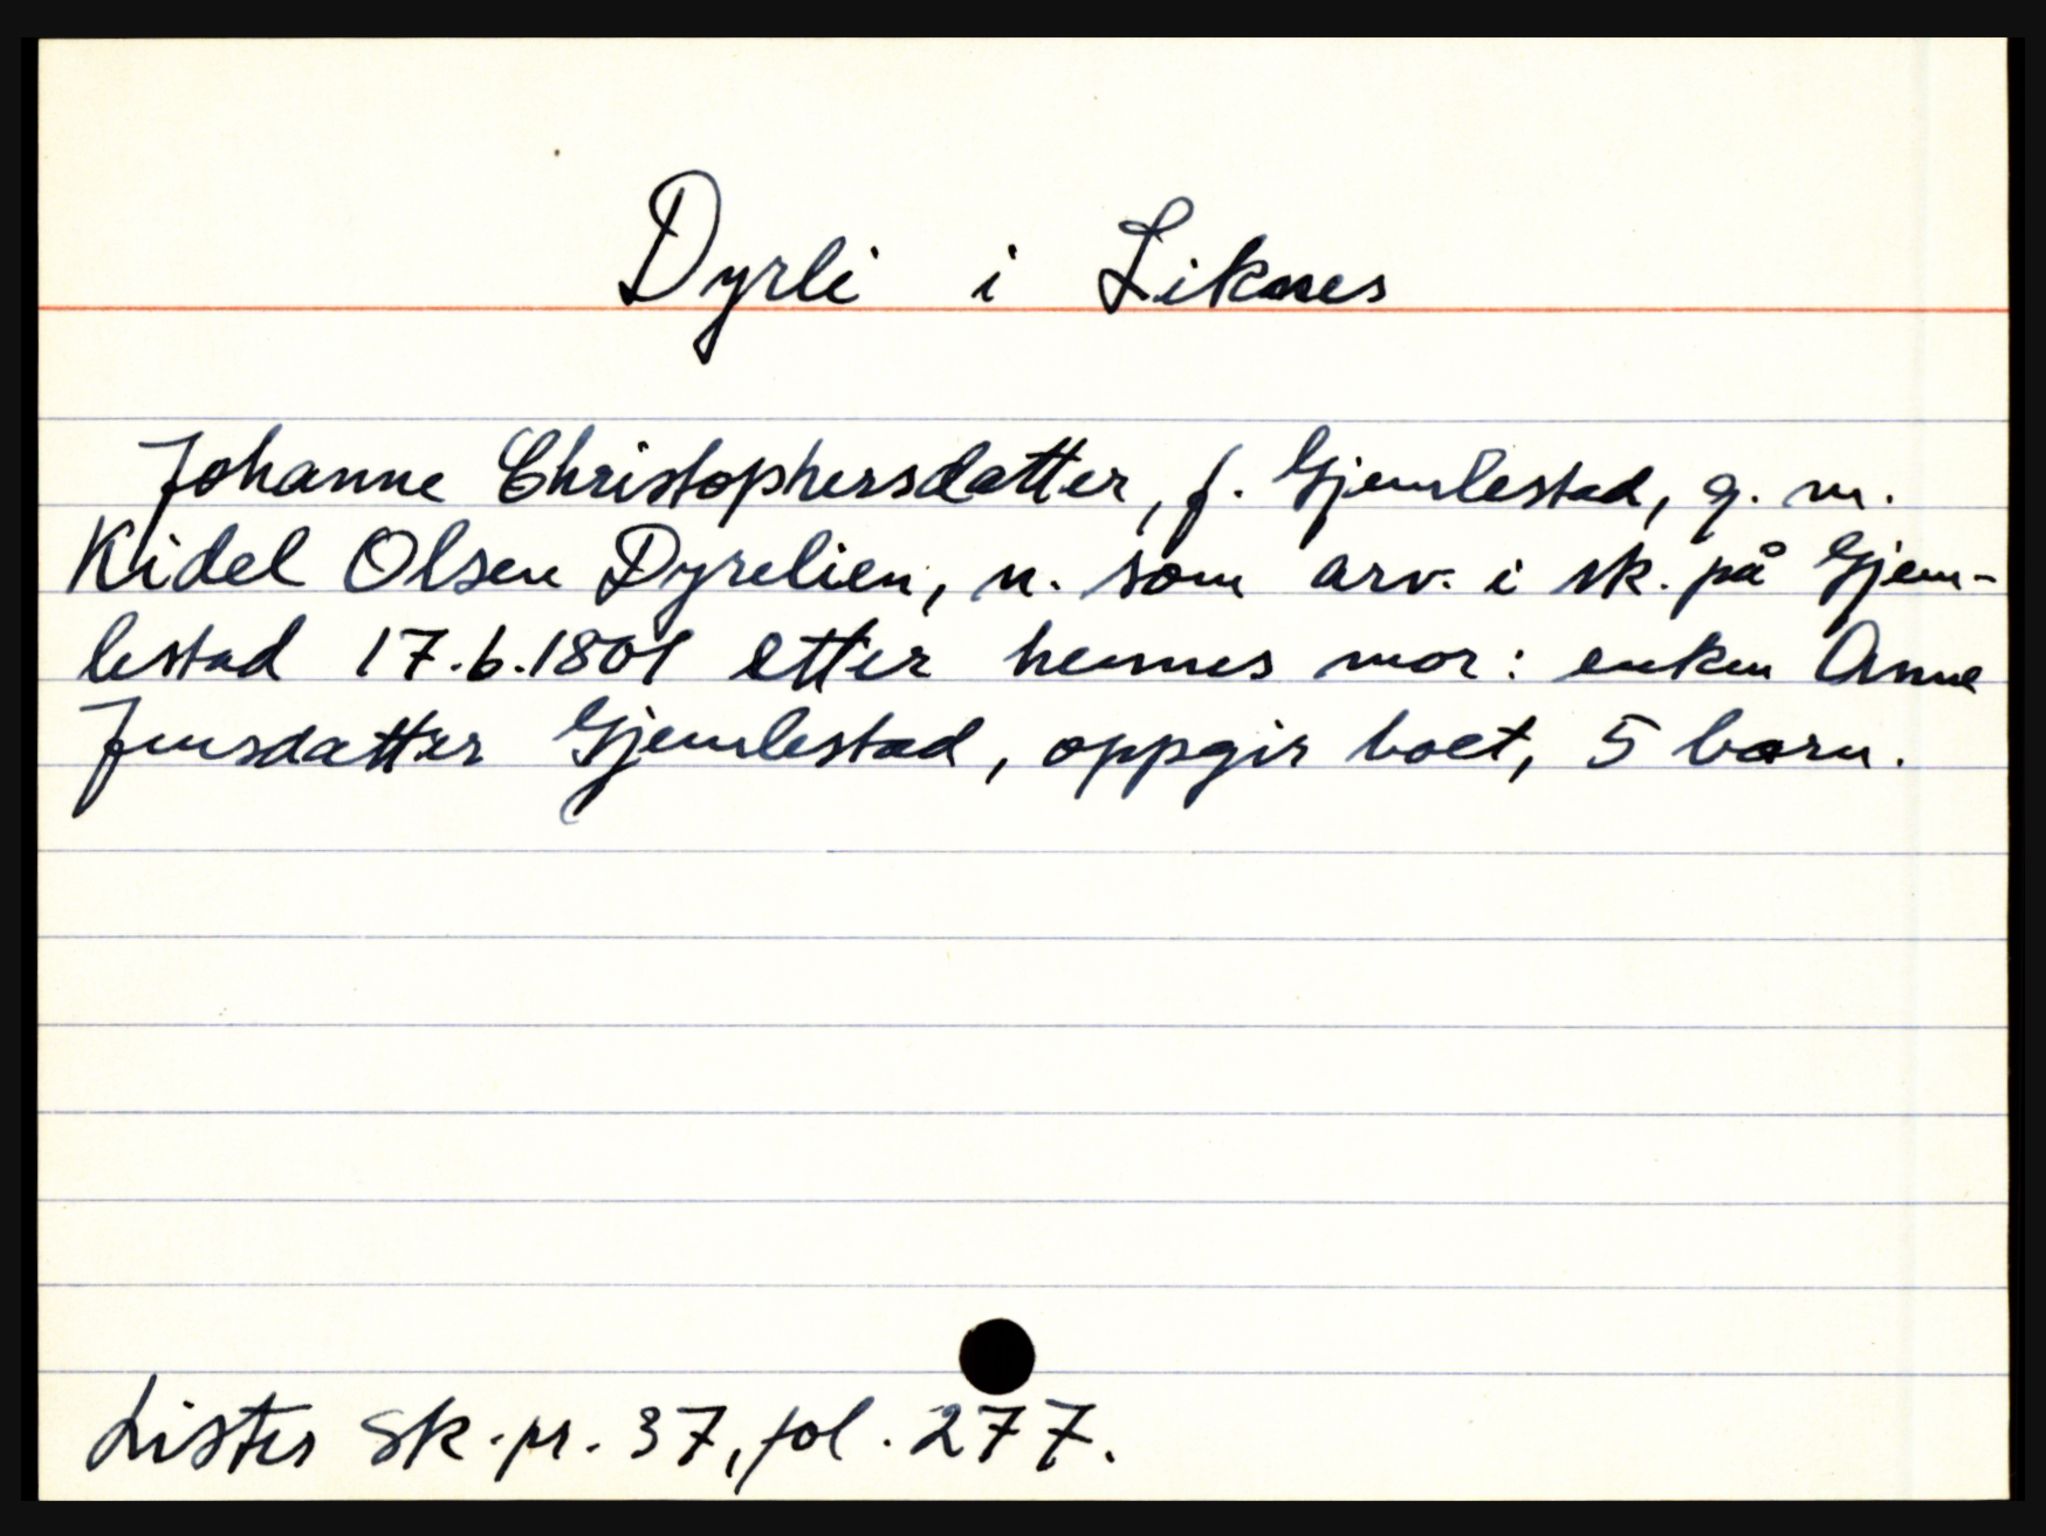 Dyrli i Liknes
Johanne Christophersdatter, f. Gjemlestad, g. m.
Kidel Olsen Dyrelien, n. som arv. i sk. på Gjem-
lestad 17.6.1801 etter hennes mor: enken Anne
Jensdatter Gjemlestad, oppgir boet, 5 barn.
Lister sk.pr. 37, fol. 277.